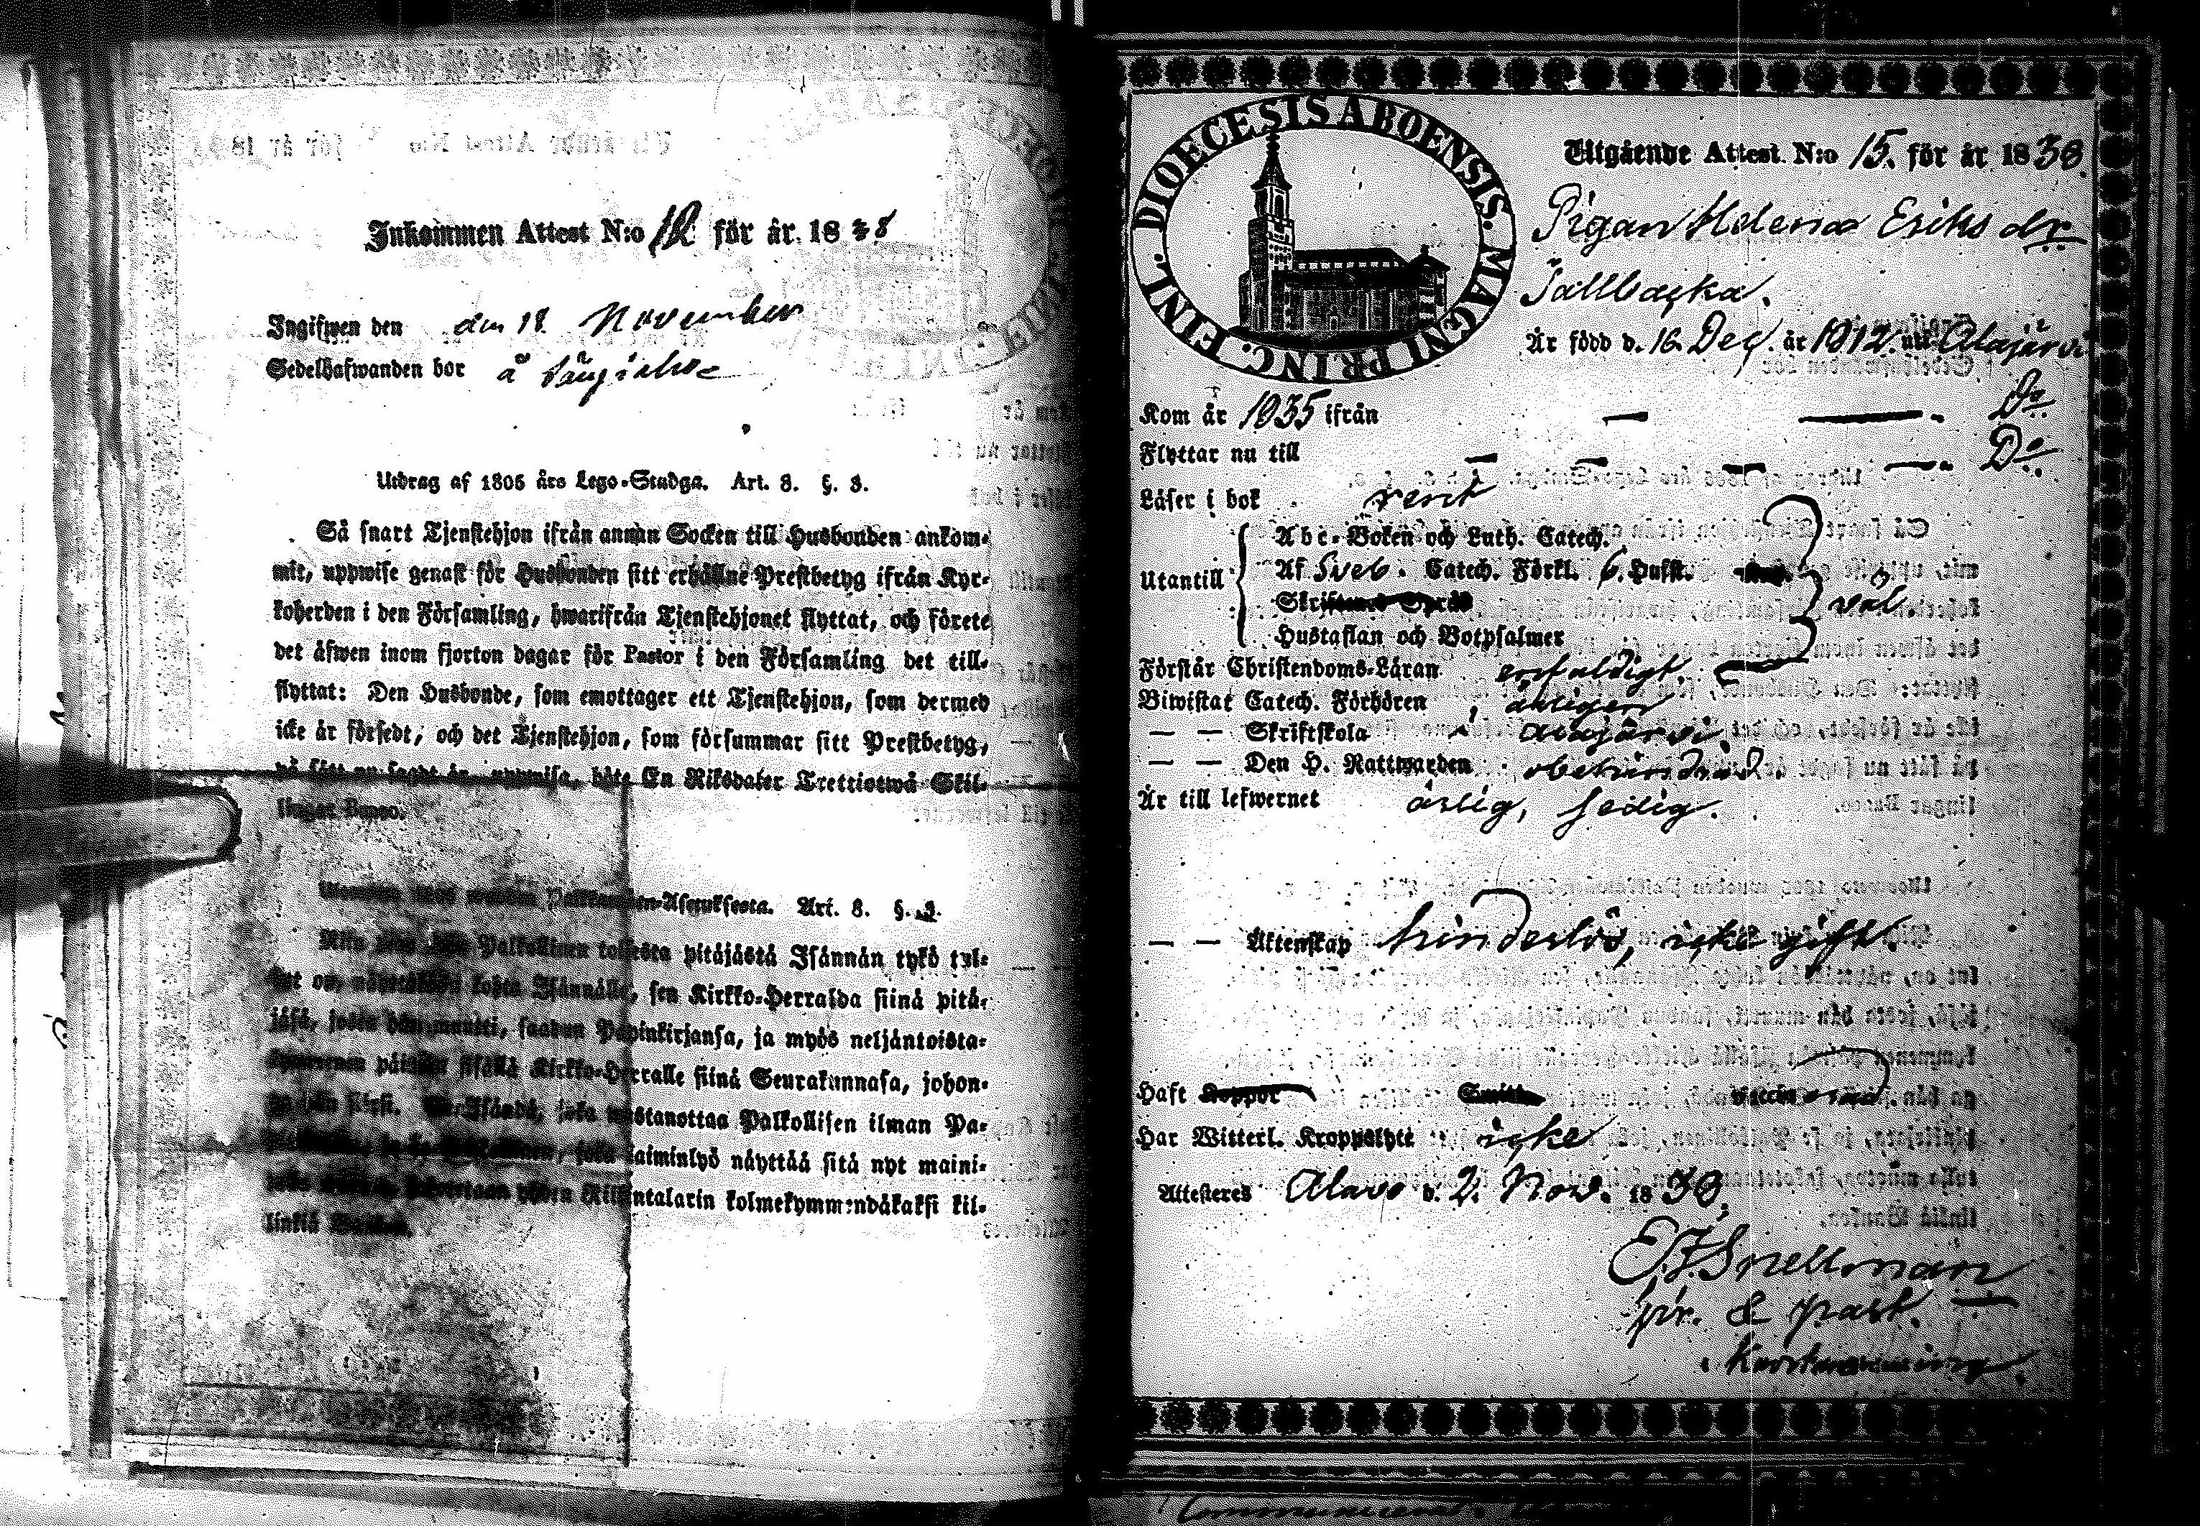 Inkommen Attest N:o 12 för år 1838
Ingifwen den den 18 November
Sedelhafwanden bor å
Utdrag af 1805 års Lego-Stadga. Art. 8. §. 3.
Så snart Tjenstehjon ifrån annan Socken till Husbonden ankom-
mit, uppwise genast för Husbonden sitt erhållne Prestbetyg ifrån Kyr-
koherden i den Församling, hwarifrån Tjenstehjonet flyttat, och förete
det åfwen inom fjorton dagar för Pastor i den Församling det till-
flyttat: Den Husbonde, som emottager ett Tjenstehjon, som dermed
icke är försedt, och det Tjenstehjon, som försummar sitt Prestbetyg,
på sätt nu sagdt är, uppwisa, böte En Riksdaler Trettiotwå Skil-
lingar Banco.
Asetuksesta. Art. 8. §. 3.
Palkollinen toisesta pitäjästä Isännän tykö tul-
Isännälle, sen Kirkko-Herralda siinä pitä-
jäsä, josta hän muutti, saadun Papinkirjansa, ja myös neljäntoista-
kymmenen päiwän sisällä Kirkko-Herralle siinä Seurakunnasa, johon-
ga hän siirsi. Se Isändä, joka wastanottaa Palkollisen ilman Pa-
joka laiminlyö näyttää sitä nyt maini-
yhden Riksintalarin kolmekymmendäkaksi kil-
linkiä Bankos.
DIOECESIS ABOENSIS. MAGNI PRINC. FINL.
Utgående Attest. N:o 15. för år 1838.
Pigan Helena Eriks dr
Sallbacka.
Är född d. 16 Dec. år 1812. uti Alajärvi
Kom år 1835 ifrån — —. Do
Flyttar nu till — — — —. Do.
Läser i bok rent
Utantill
Abc-Boken och Luth. Catech.
Af Sveb. Catech. Förkl. 6. Hufst.
Skriftenes Språk
väl.
Hustaflan och Botpsalmer
Förstår Christendoms-Läran enfaldigt
Biwistat Catech. Förhören årligen
— — Skriftskola Alajärvi
— — Den H. Nattwarden obehindrad
Är till lefwernet ärlig, sedig.
— — Äktenskap hinderlös, icke gift.
Haft Koppor Smitt vaccinerad.
Har Witterl. Kroppslyte icke
Attesteres Alavo d. 2. Nov. 1838.
E. J. Snellman
pr. & past.